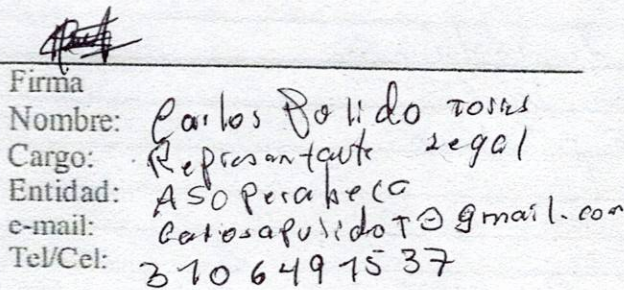 Firma
Nombre: Carlos Polido Torres
Cargo: Representante Legal
Entidad: ASOperabeca
e-mail: carlosapulidoT@gmail.com
Tel/Cel: 310 649 15 37